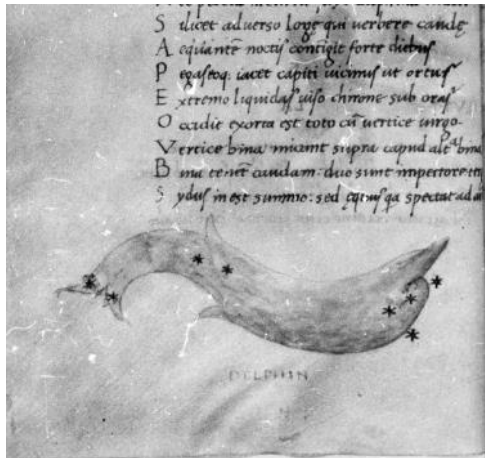 S ilicet adverso longe qui verbere caudę
A equantē noctis contigit forte diebus
P egaseoq; iacet capiti vicinus ut ortus
E xtremo liquidas viso chirone sub oras
O ccidit exorta est toto cū vertice virgo.
V ertice bina micant supra capud
B ina tenēt caudam: duo sunt
S ydus in est summo: sed spectat ad
DELPHIN